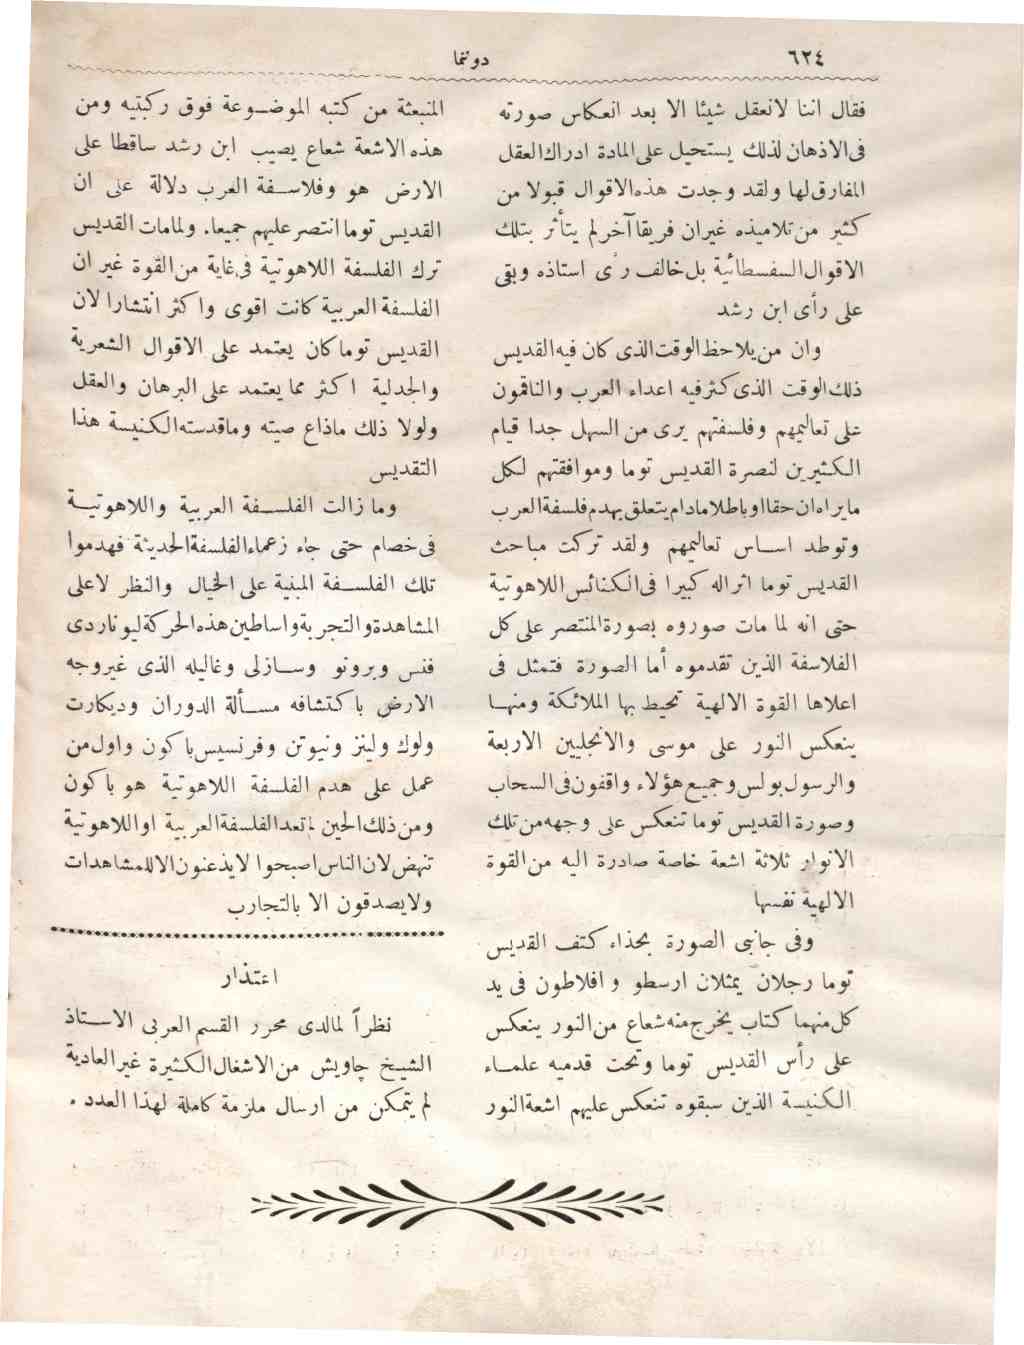 ٦٢٤
دونما
فقال اننا لانعقل شيئا الا بعد انعكاس صورته
فى الاذهان لذلك يستحيل على المادة ادراك العقل
المفارق لها ولقد وجدت هذه الاقوال قبولا من
كثير من تلاميذه غير ان فريقا آخر لم يتأثر بتلك
الاقوال السفسطائية بل خالف رأى استاذه وبقى
على رأى ابن رشد
وان من يلاحظ الوقت الذى كان فيه القديس
ذلك الوقت الذى كثر فيه اعداء العرب والناقمون
على تعاليمهم وفلسفتهم يرى من السهل جدا قيام
الكثيرين لنصرة القديس توما وموافقتهم لكل
مايراه ان حقا او باطلا مادام يتعلق بهدم فلسفة العرب
وتوطد اساس تعاليمهم ولقد تركت مباحث
القديس توما اثراله كبيرا فى الكنائس اللاهوتية
حتى انه لما مات صوروه بصورة المنتصر على كل
الفلاسفة الذين تقدموه أما الصورة فتمثل فى
اعلاها القوة الالهية تحيط بها الملائكة ومنها
ينعكس النور على موسى والانجليين الاربعة
والرسول بولس وجميع هؤلاء واقفون فى السحاب
وصورة القديس توما تنعكس على وجهه من تلك
الانوار ثلاثة اشعة خاصة صادرة اليه من القوة
الالهية نفسها
وفى جانبى الصورة بحذاء كتف القديس
توما رجلان يمثلان ارسطو وافلاطون فى يد
كل منهما كتاب يخرج منه شعاع من النور ينعكس
على رأس القديس توما وتحت قدميه علماء
الكنيسة الذين سبقوه تنعكس عليهم اشعة النور
المنبعثة من كتبه الموضوعة فوق ركبتيه ومن
هذه الاشعة شعاع يصيب ابن رشد ساقطا على
الارض هو وفلاسفة العرب دلالة على ان
القديس توما انتصر عليهم جميعا. ولمامات القديس
ترك الفلسفة اللاهوتية فى غاية من القوة غير ان
الفلسفة العربية كانت اقوى واكثر انتشارا لان
القديس توما كان يعتمد على الاقوال الشعرية
والجدلية اكثر مما يعتمد على البرهان والعقل
ولولا ذلك ماذاع صيته وماقدسته الكنيسة هذا
التقديس
وما زالت الفلسفة العربية واللاهوتية
فى خصام حتى جاء زعماء الفلسفة الحديثة فهدموا
تلك الفلسفة المبنية على الخيال والنظر لاعلى
المشاهدة والتجربة واساطين هذه الحركة ليوناردى
فنس وبرونو وسازلى وغاليله الذى غير وجه
الارض باكتشافه مسألة الدوران وديكارت
ولوك ولينز ونيوتن وفرنسيس باكون واول من
عمل على هدم الفلسفة اللاهوتية هو باكون
ومن ذلك الحين لم تعد الفلسفة العربية او اللاهوتية
تنهض لان الناس اصبحوا لايذعنون الا للمشاهدات
ولايصدقون الا بالتجارب
اعتذار
نظراً لمالدى محرر القسم العربى الاستاذ
الشيخ چاويش من الاشغال الكثيرة غير العادية
لم يتمكن من ارسال ملزمة كاملة لهذا العدد .